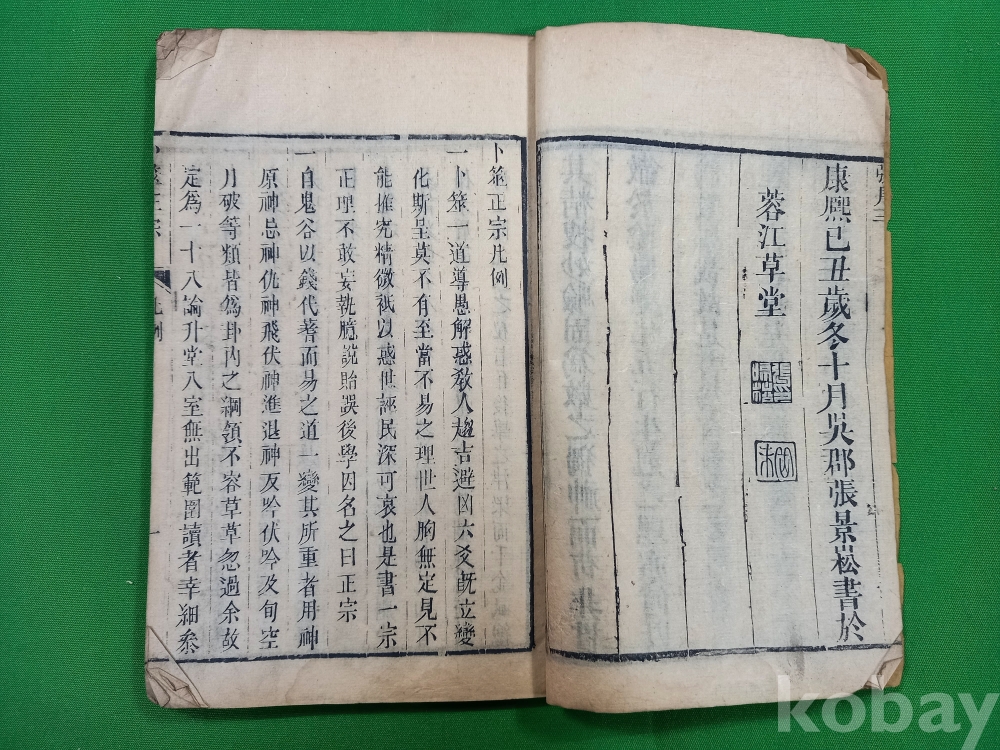 康熙己丑歲冬十月吳郡張景崧書於
蓉江草堂
卜筮正宗凡例
一卜筮一道導愚解惑教人趨吉避凶六爻旣立變
化斯呈莫不有至當不易之理世人胸無定見不
能推究精微祗以惑世誣民深可哀也是書一宗
正理不敢妄執臆說貽誤後學因名之曰正宗
一自鬼谷以錢代蓍而易之道一變其所重者用神
原神忌神仇神飛伏神進退神反吟伏吟及旬空
月破等類皆爲卦內之綱領不容草草忽過余故
定爲一十八論升堂入室無出範圍讀者幸細參
卜筮正宗
凡例
一
kobay